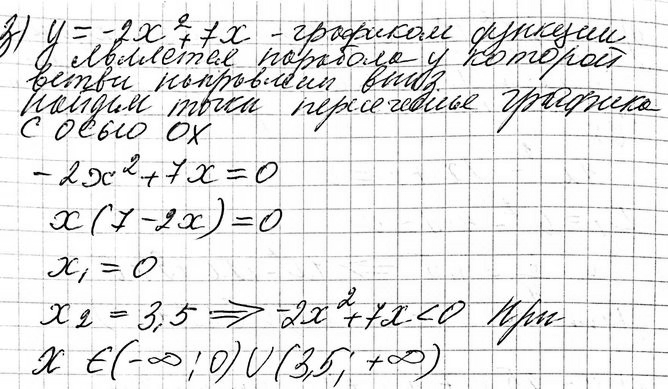 з) y = -2x² + 7x - графиком функции
является парабола у которой
ветви направлен вниз
Найдем точки пересеченье графика
с осью ox
-2x² + 7x = 0
x(7 - 2x) = 0
x₁ = 0
x₂ = 3,5 ⇒ -2x² + 7x < 0 при
x ∈ (-∞; 0) ∪ (3,5; +∞)